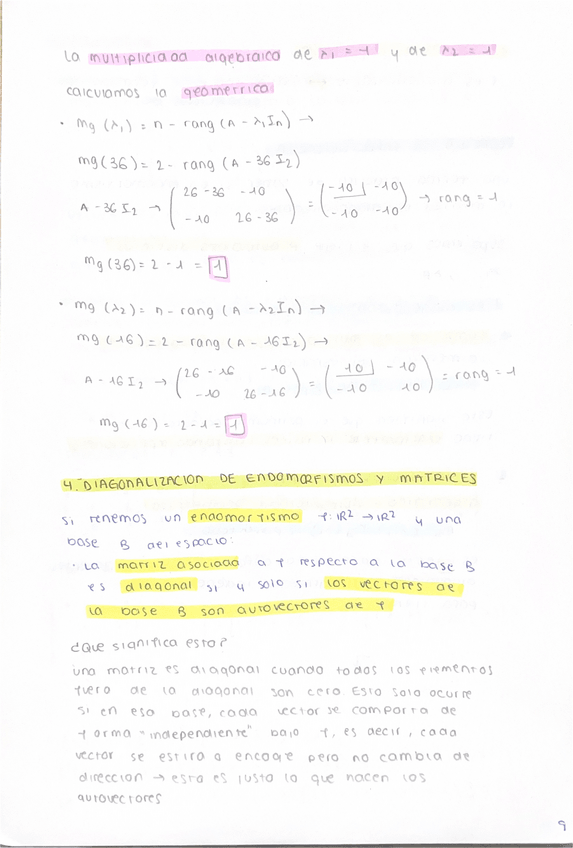 La multiplicidad algebraica de λ₁ = 1 y de λ₂ = 1
calculamos la geométrica
· mg (λ₁) = n - rang (A - λ₁In) →
mg(36) = 2 - rang (A - 36 I₂)
A - 36 I₂ → (26-36 -10; -10 26-36) = (-10 -10; -10 -10) → rang = 1
mg(36) = 2 - 1 = 1
· mg (λ₂) = n - rang (A - λ₂In) →
mg (16) = 2 - rang (A - 16I₂) →
A - 16 I₂ → (26 - 16 -10; -10 26-16) = (10 -10; -10 10) = rang = 1
mg (16) = 2 - 1 = 1
4. DIAGONALIZACION DE ENDOMORFISMOS Y MATRICES
si tenemos un endomorfismo f: IR² → IR² y una
base B del espacio:
· La matriz asociada a f respecto a la base B
es diagonal si y solo si los vectores de
la base B son autovectores de f
¿Que significa esto?
una matriz es diagonal cuando todos los elementos
fuera de la diagonal son cero Esto solo ocurre
si en esa base, cada vector se comporta de
forma "independiente" bajo f, es decir, cada
vector se estira o encoge pero no cambia de
direccion → esta es justo lo que hacen los
autovectores
9